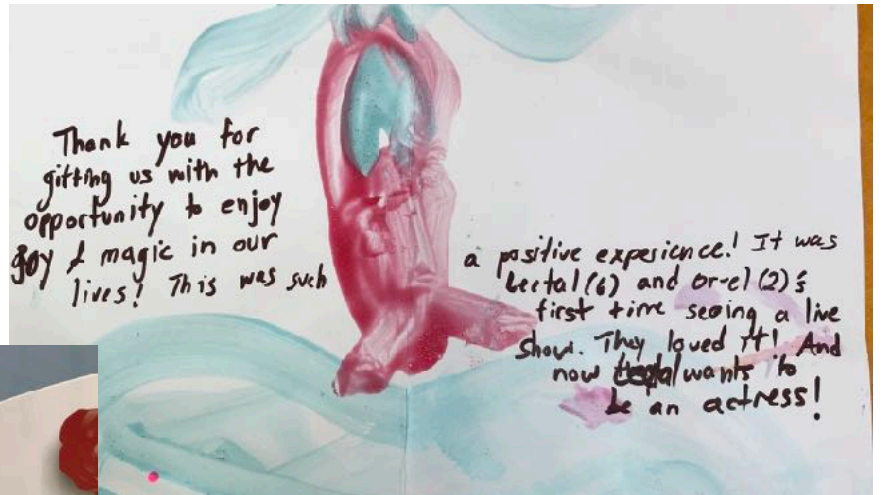 Thank you for
gifting us with the
opportunity to enjoy
joy & magic in our
lives! This was such
a positive experience! It was
(6) and Or-el (2)'s
first time seeing a live
show. They loved it! And
now wants to
be an actress!